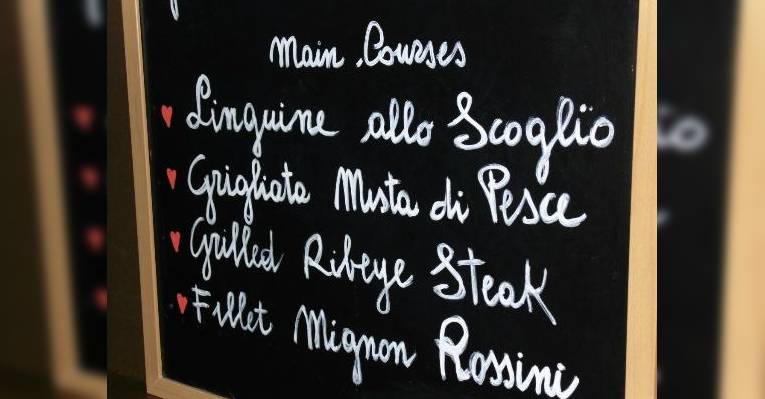 Main Courses
Linguine allo Scoglio
Grigliata Mista di Pesce
Grilled Ribeye Steak
Fillet Mignon Rossini